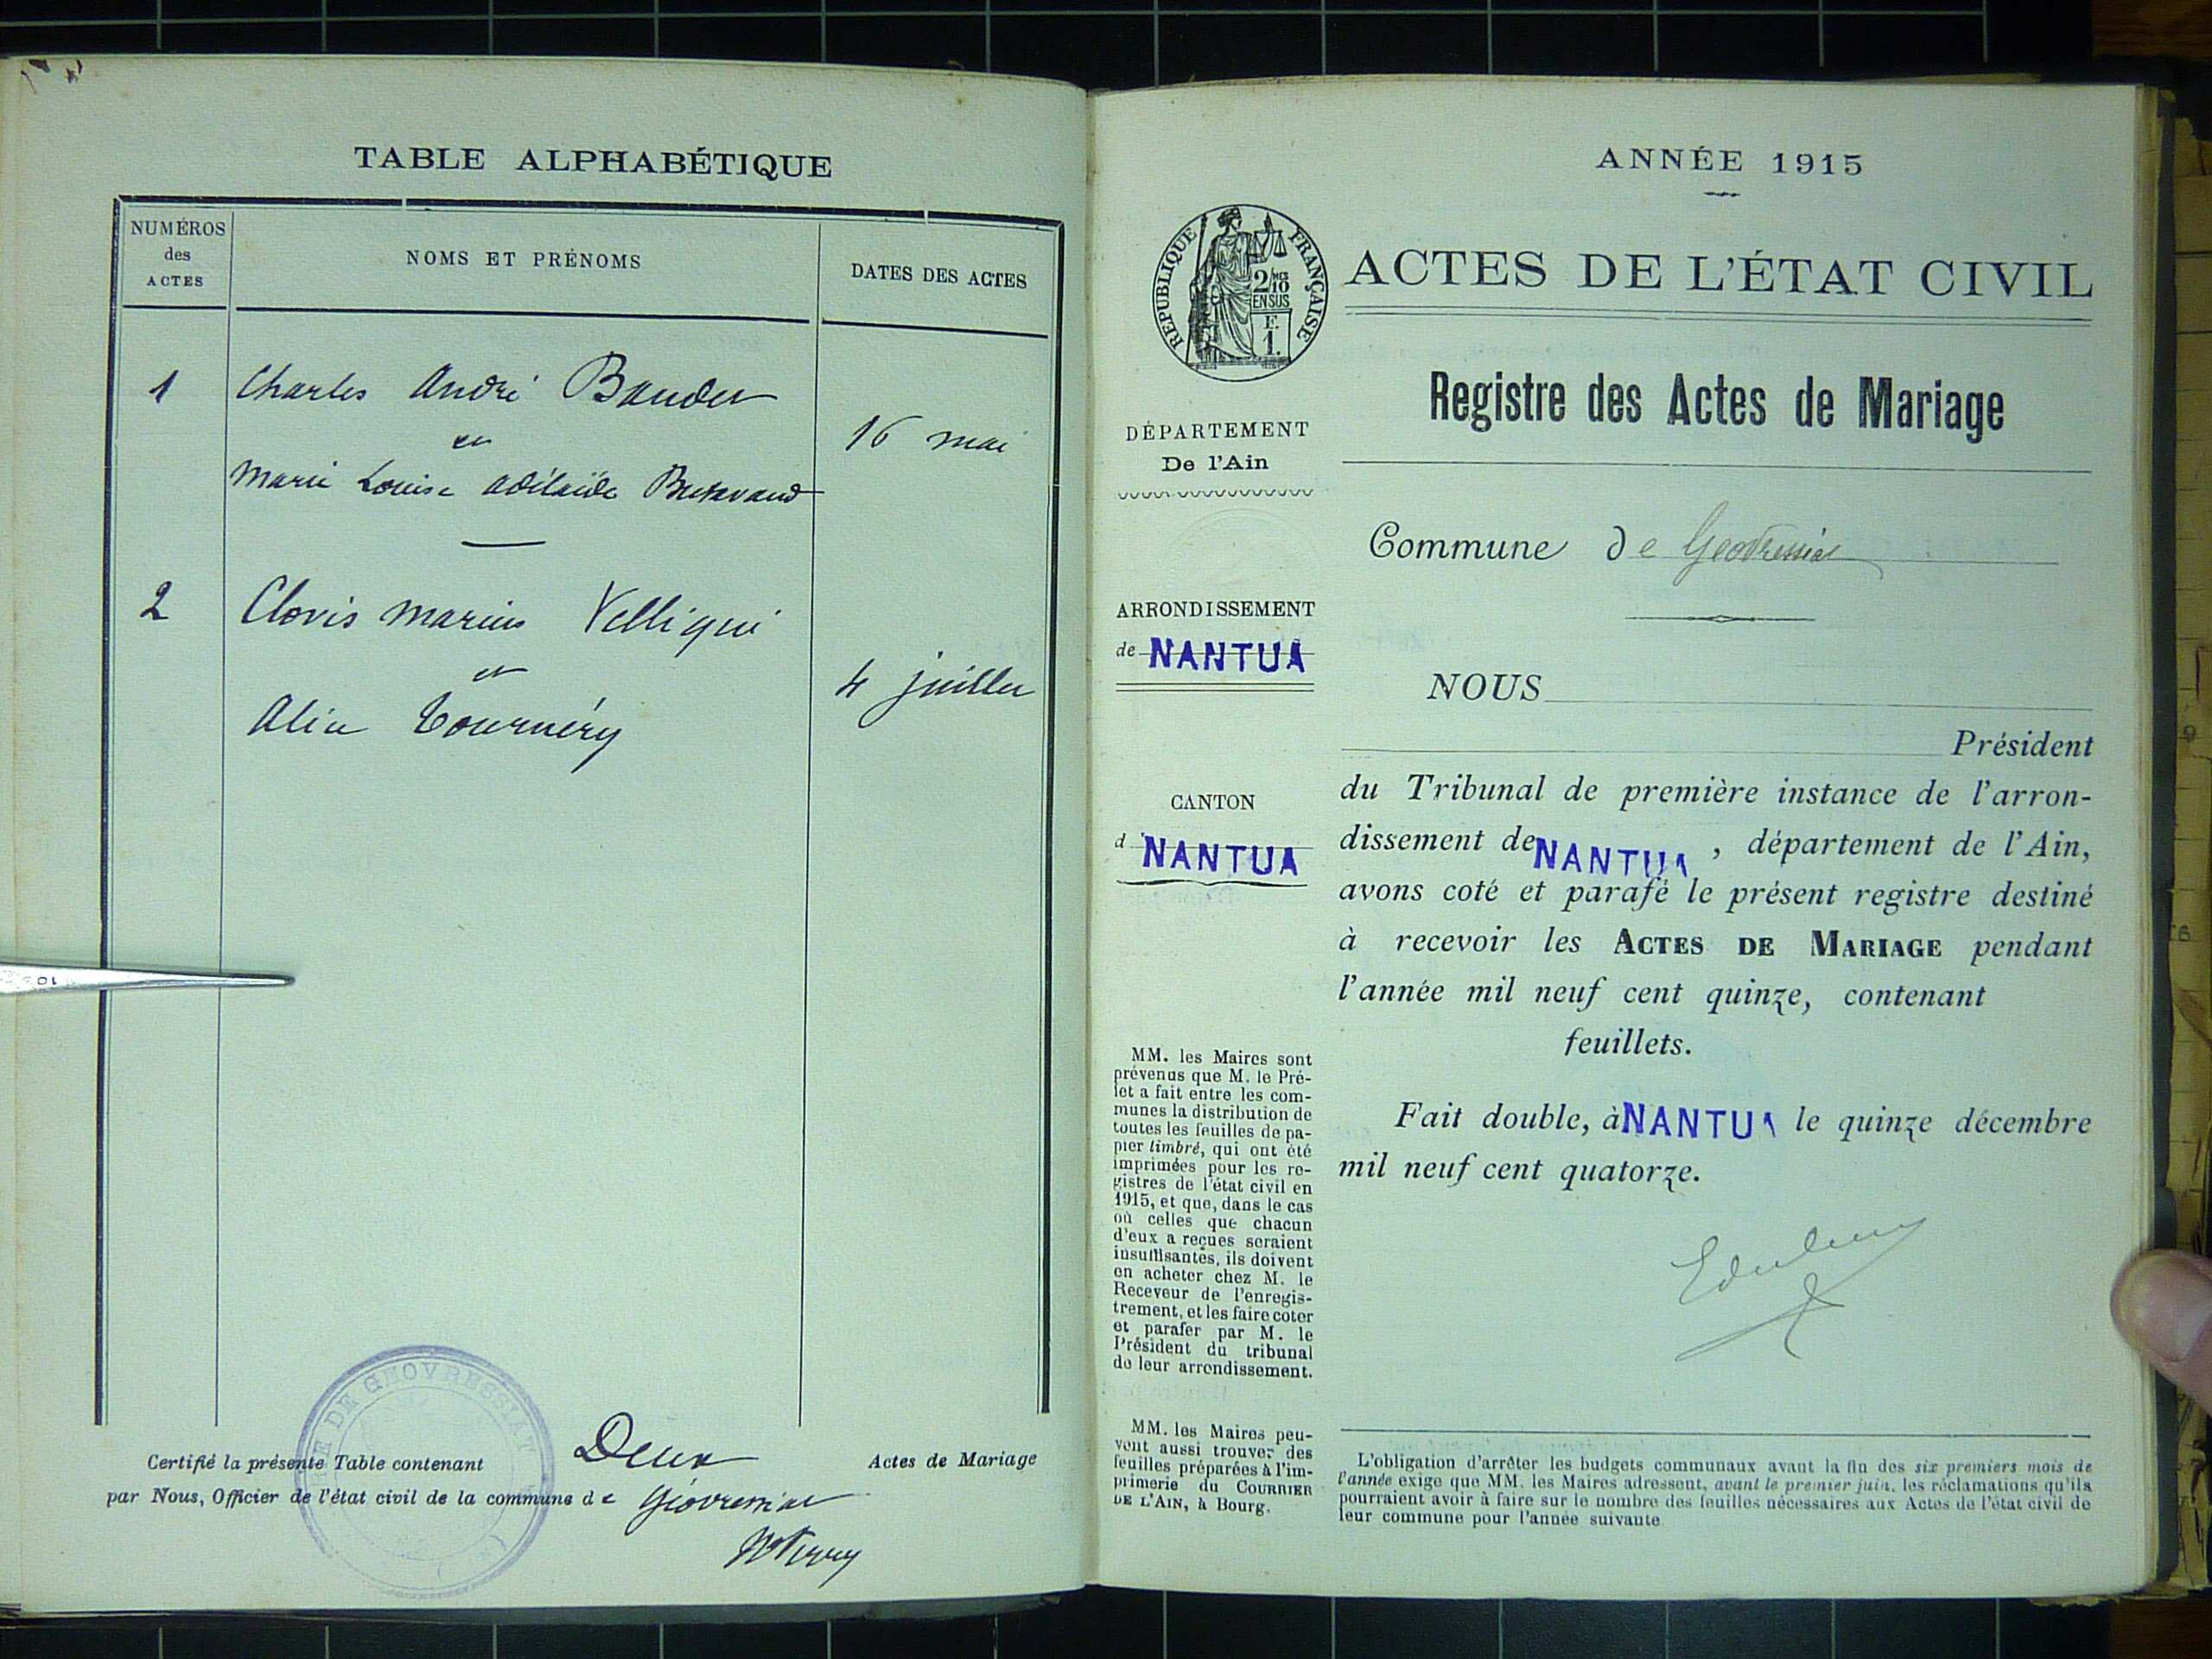 TABLE ALPHABÉTIQUE
NUMÉROS
des
ACTES
NOMS ET PRÉNOMS
DATES DES ACTES
1
Charles André
et
Marie Louise Adélaïde
16 mai
2
Clovis Marius Velliqui
et
Tournéry
4 juillet
Certifié la présente Table contenant Deux Actes de Mariage
par Nous, Officier de l'état civil de la commune de Géovressiat
DE GEOVRESSIAT
ANNÉE 1915
RÉPUBLIQUE FRANÇAISE
2/10
EN SUS
F.
1.
ACTES DE L'ÉTAT CIVIL
Registre des Actes de Mariage
DÉPARTEMENT
De l'Ain
Commune de Geovressiat
ARRONDISSEMENT
de NANTUA
CANTON
d NANTUA
NOUS
Président
du Tribunal de première instance de l'arron-
dissement de NANTUA, département de l'Ain,
avons coté et parafé le présent registre destiné
à recevoir les ACTES DE MARIAGE pendant
l'année mil neuf cent quinze, contenant
feuillets.
Fait double, à NANTUA le quinze décembre
mil neuf cent quatorze.
MM. les Maires sont
prévenus que M. le Pré-
fet a fait entre les com-
munes la distribution de
toutes les feuilles de pa-
pier timbré, qui ont été
imprimées pour les re-
gistres de l'état civil en
1915, et que, dans le cas
où celles que chacun
d'eux a reçues seraient
insuffisantes, ils doivent
en acheter chez M. le
Receveur de l'enregis-
trement, et les faire coter
et parafer par M. le
Président du tribunal
de leur arrondissement.
MM. les Maires peu-
vent aussi trouver des
feuilles préparées à l'im-
primerie du COURRIER
DE L'AIN, à Bourg.
L'obligation d'arrêter les budgets communaux avant la fin des six premiers mois de
l'année exige que MM. les Maires adressent, avant le premier juin, les réclamations qu'ils
pourraient avoir à faire sur le nombre des feuilles nécessaires aux Actes de l'état civil de
leur commune pour l'année suivante.